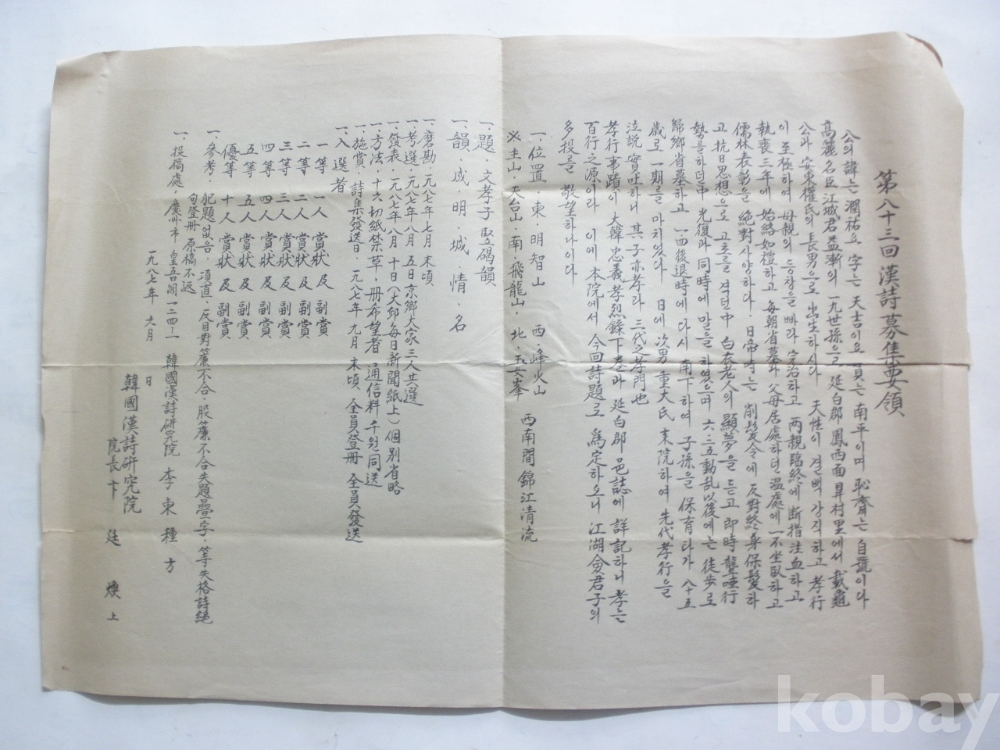 第八十三回 漢詩募集要領
公의 諱는 潤祐요 字는 天吉이요 貫는 南平이며 恥齋는 自號이다
高麗名臣 江城君 益漸의 九世孫으로 延白郡 鳳西面 昇村里에서 載
公과 安東權氏의 長男으로 出生하시다 天性이 결백 강직하고 孝行
이 至極하여 母親의 등창을 빠라 完治하고 两親臨終에 断指注血하고
執喪三年에 始終如禮하고 每朝省墓와 父母居處하던 温處에 不坐臥하고
儒林表彰을 絶對사양하다 日帝때는 削髮令에 反對終身保髮하
고 抗日思想으로 고초를 격던中 白衣老人의 顯夢을 듣고 即時聾啞行
勢를하던中 光復과 同時에 말을 하였으며 六·二五動乱以後에는 徒步로
歸鄕省墓하고 一四後退時에 다시 南下하여 子孫을 保育타가 八十五
歲로 一期를 마치였다 日에 次男 重大氏 来院하여 先代孝行을
泣説 實旺하니 其子亦孝라 三代之孝門也
孝行事蹟이 大韓忠義孝烈錄下卷과 延白郡邑誌에 詳記하니 孝는
百行之源이라 이에 本院에서 今回詩題로 爲定하오니 江湖僉君子의
多投를 敬望하나이다
一. 位置·東·明智山 西·峰火山 西南間錦江清流
※主山·天台山·南·飛龍山· 北·玉女峯
一題·文孝子竪碣韻
一韻·成·明·城·情·名
一磨勘 一九八七年七月末頃
一考選·一九八七年八月五日京鄉大家三人共選
一發表·一九八七年八月十日(大邱每日新聞紙上)個別省略
一方法·十六切紙禁草·冊希望者 通信料千원同送
一施賞·詩集發送日·一九八七年九月末頃 全員登冊 全員發送
一入選者
一等 一人 賞狀及副賞
二等 二人 賞狀及副賞
三等 三人 賞狀及副賞
四等 四人 賞狀及副賞
五等 五人 賞狀及副賞
優等 十人 賞狀及副賞
一. 参考· 犯題없음·項直·反目對簾不合·股簾不合失題疊字·等失格詩絶
句登冊 原稿不返
一投稿處·慶州市 皇吾洞一二四ノ一 韓國漢詩研究院 李東種方
一九八七年 六月 日
韓國漢詩研究院
院長 卞廷煥 上
kobay